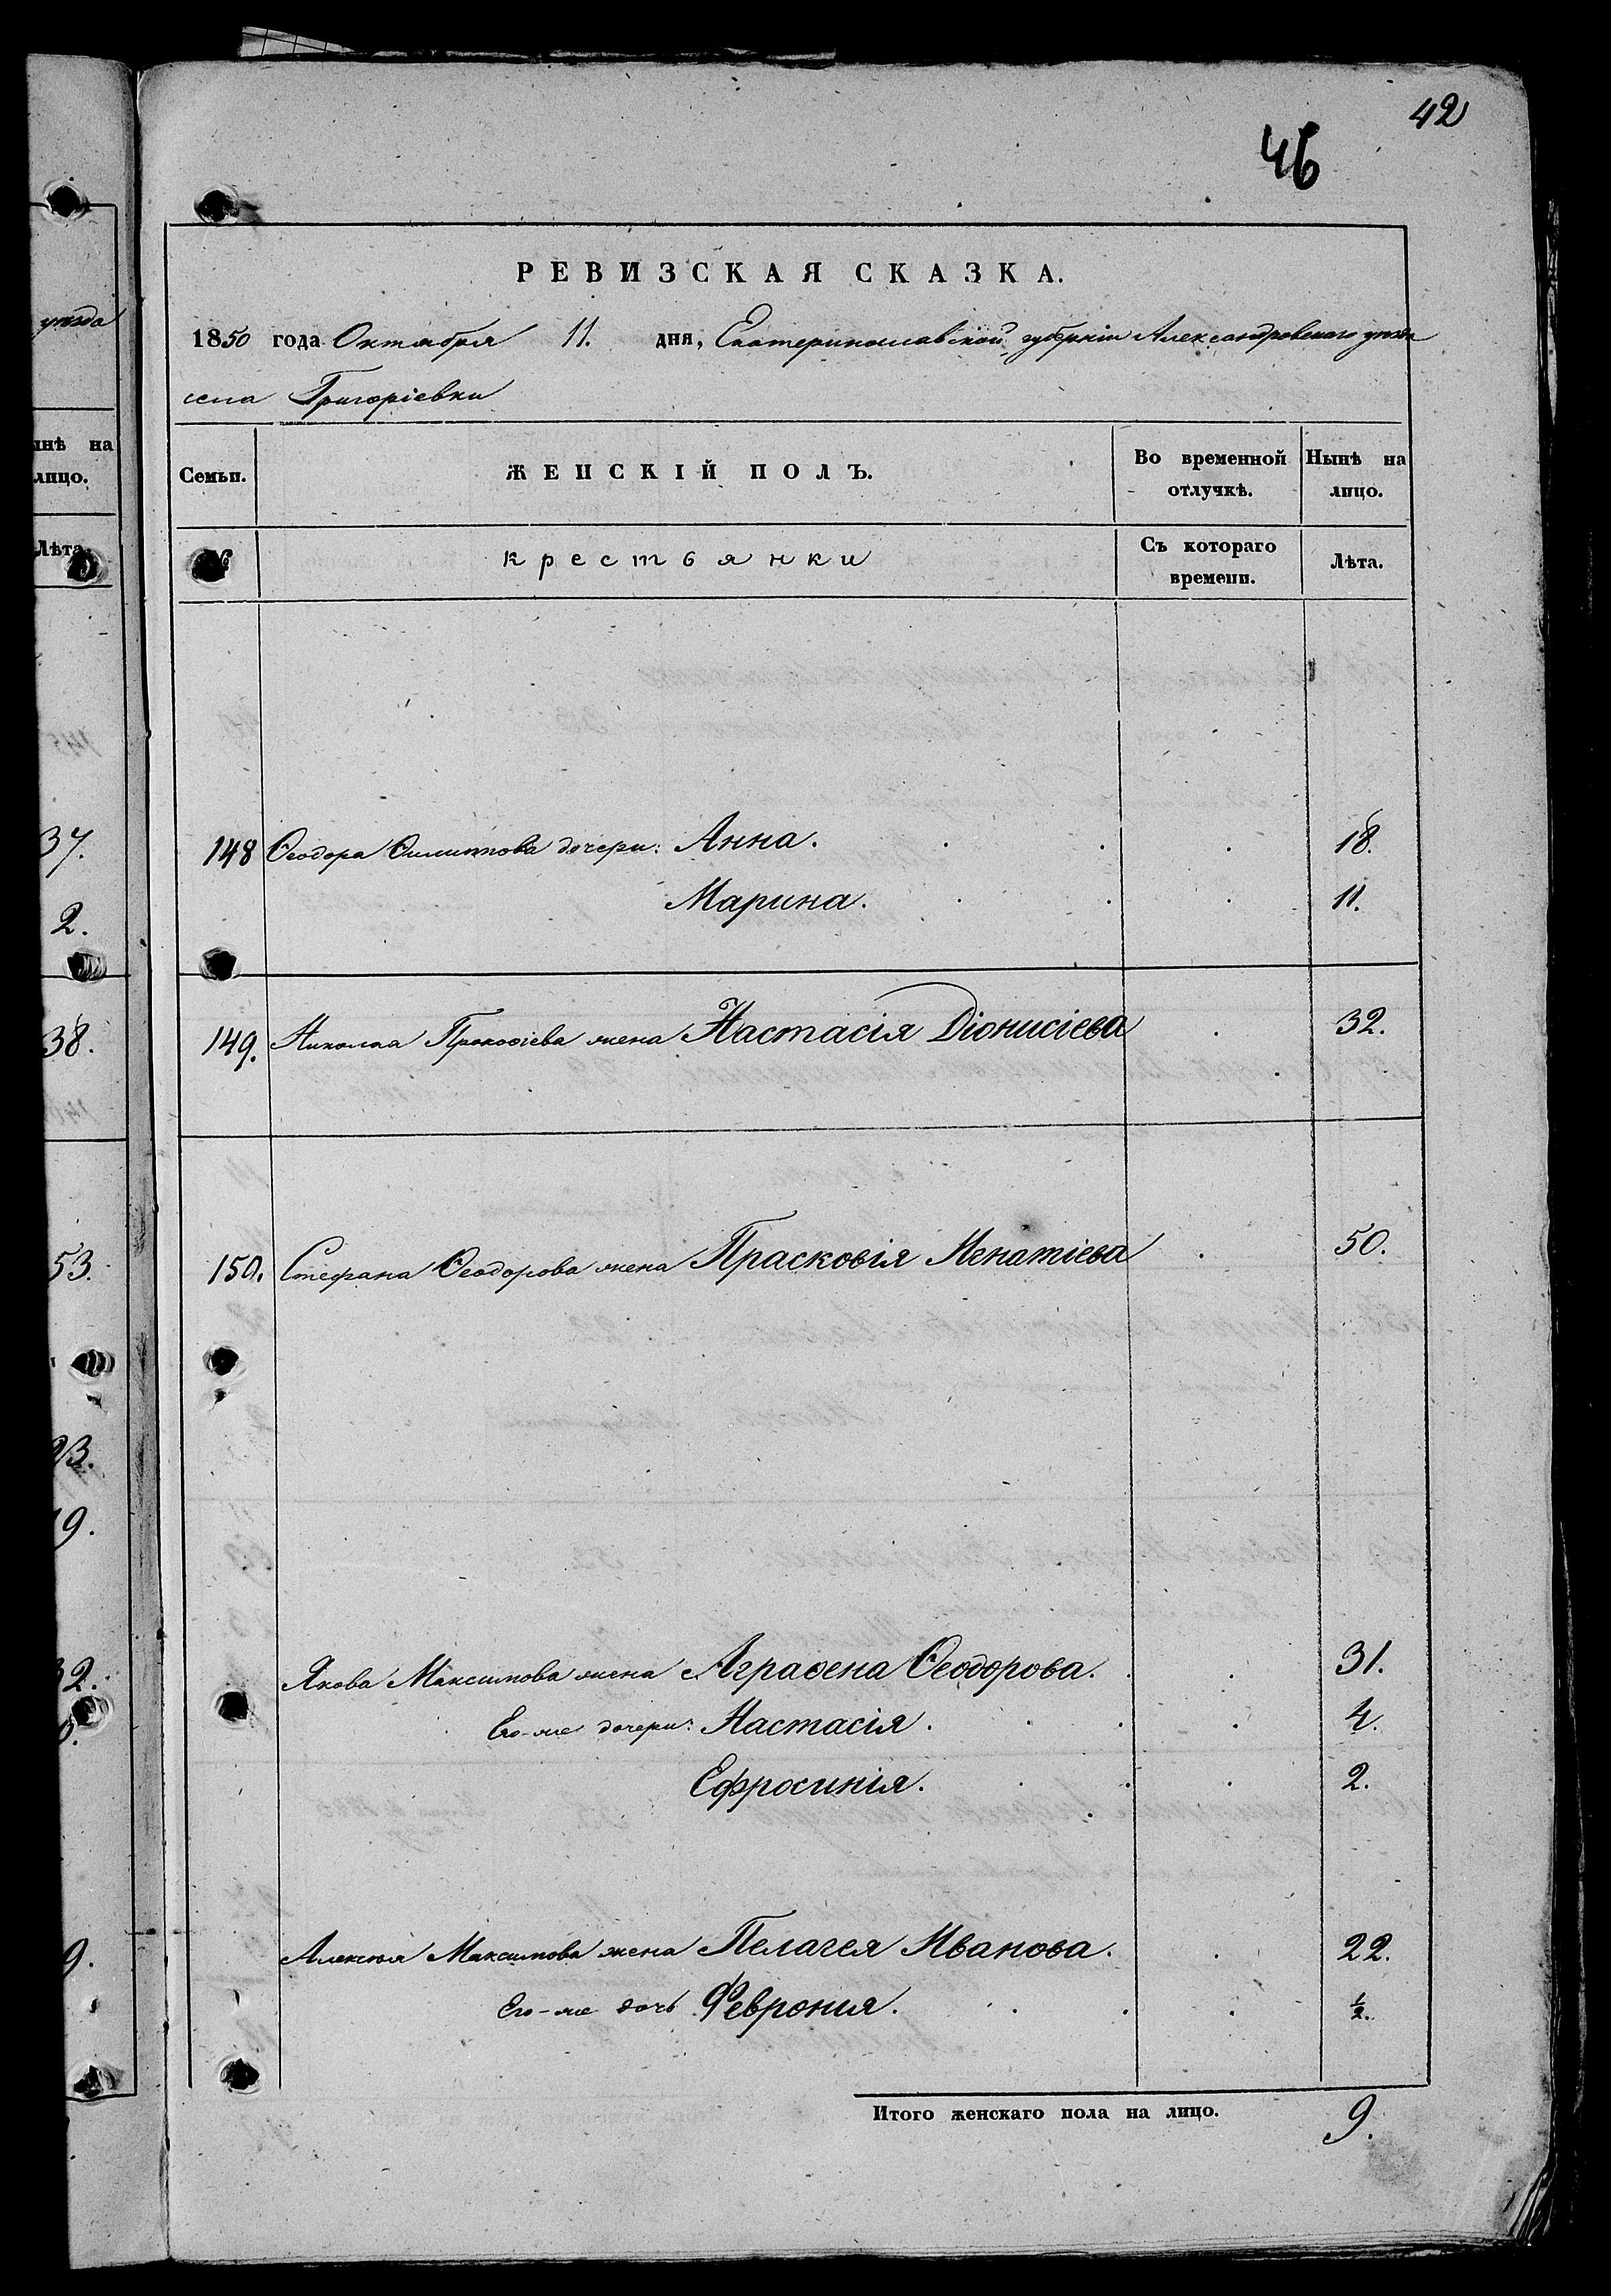 42
46
РЕВИЗСКАЯ СКАЗКА.
1850 года Октября 11. дня, Екатеринославской губерніи Александровскаго уѣзда
села Григоріевки
Семьи. ЖЕНСКІЙ ПОЛЪ. Во временной отлучкѣ. Нынѣ на лицо.
крестьянки Съ котораго времени. Лѣта.
148 Ѳеодора Филиппова дочери: Анна. 18.
Марина. 11.
149. Николая Прокофіева жена Настасія Діонисіева 32.
150. Стефана Ѳеодорова жена Прасковія 50.
Якова Максимова жена Аграѳена Ѳеодорова. 31.
Его-же дочери: Настасія. 4.
Ефросинія. 2.
Алексѣя Максимова жена Пелагея Иванова. 22.
Его-же дочь Феврония. ½.
Итого женскаго пола на лицо. 9.
уѣзда
нѣ на
лицо.
Лѣта.
37.
2.
38.
53.
23.
9.
9.